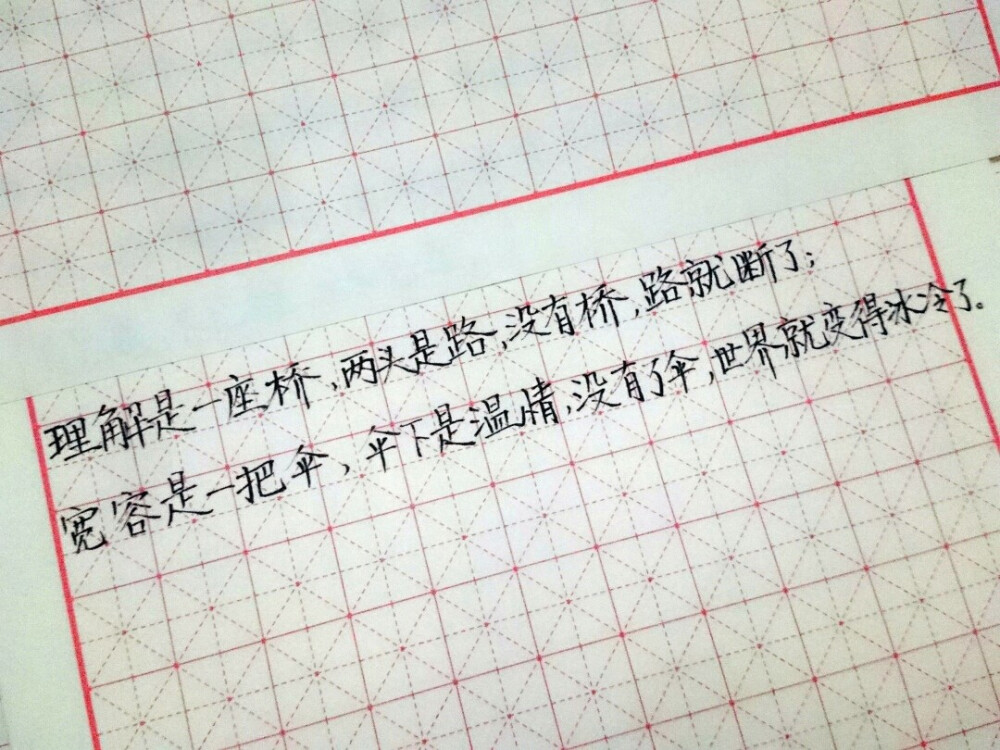 理解是一座桥,两头是路,没有桥,路就断了;
宽容是一把伞,伞下是温情,没有了伞,世界就变得冰冷了。